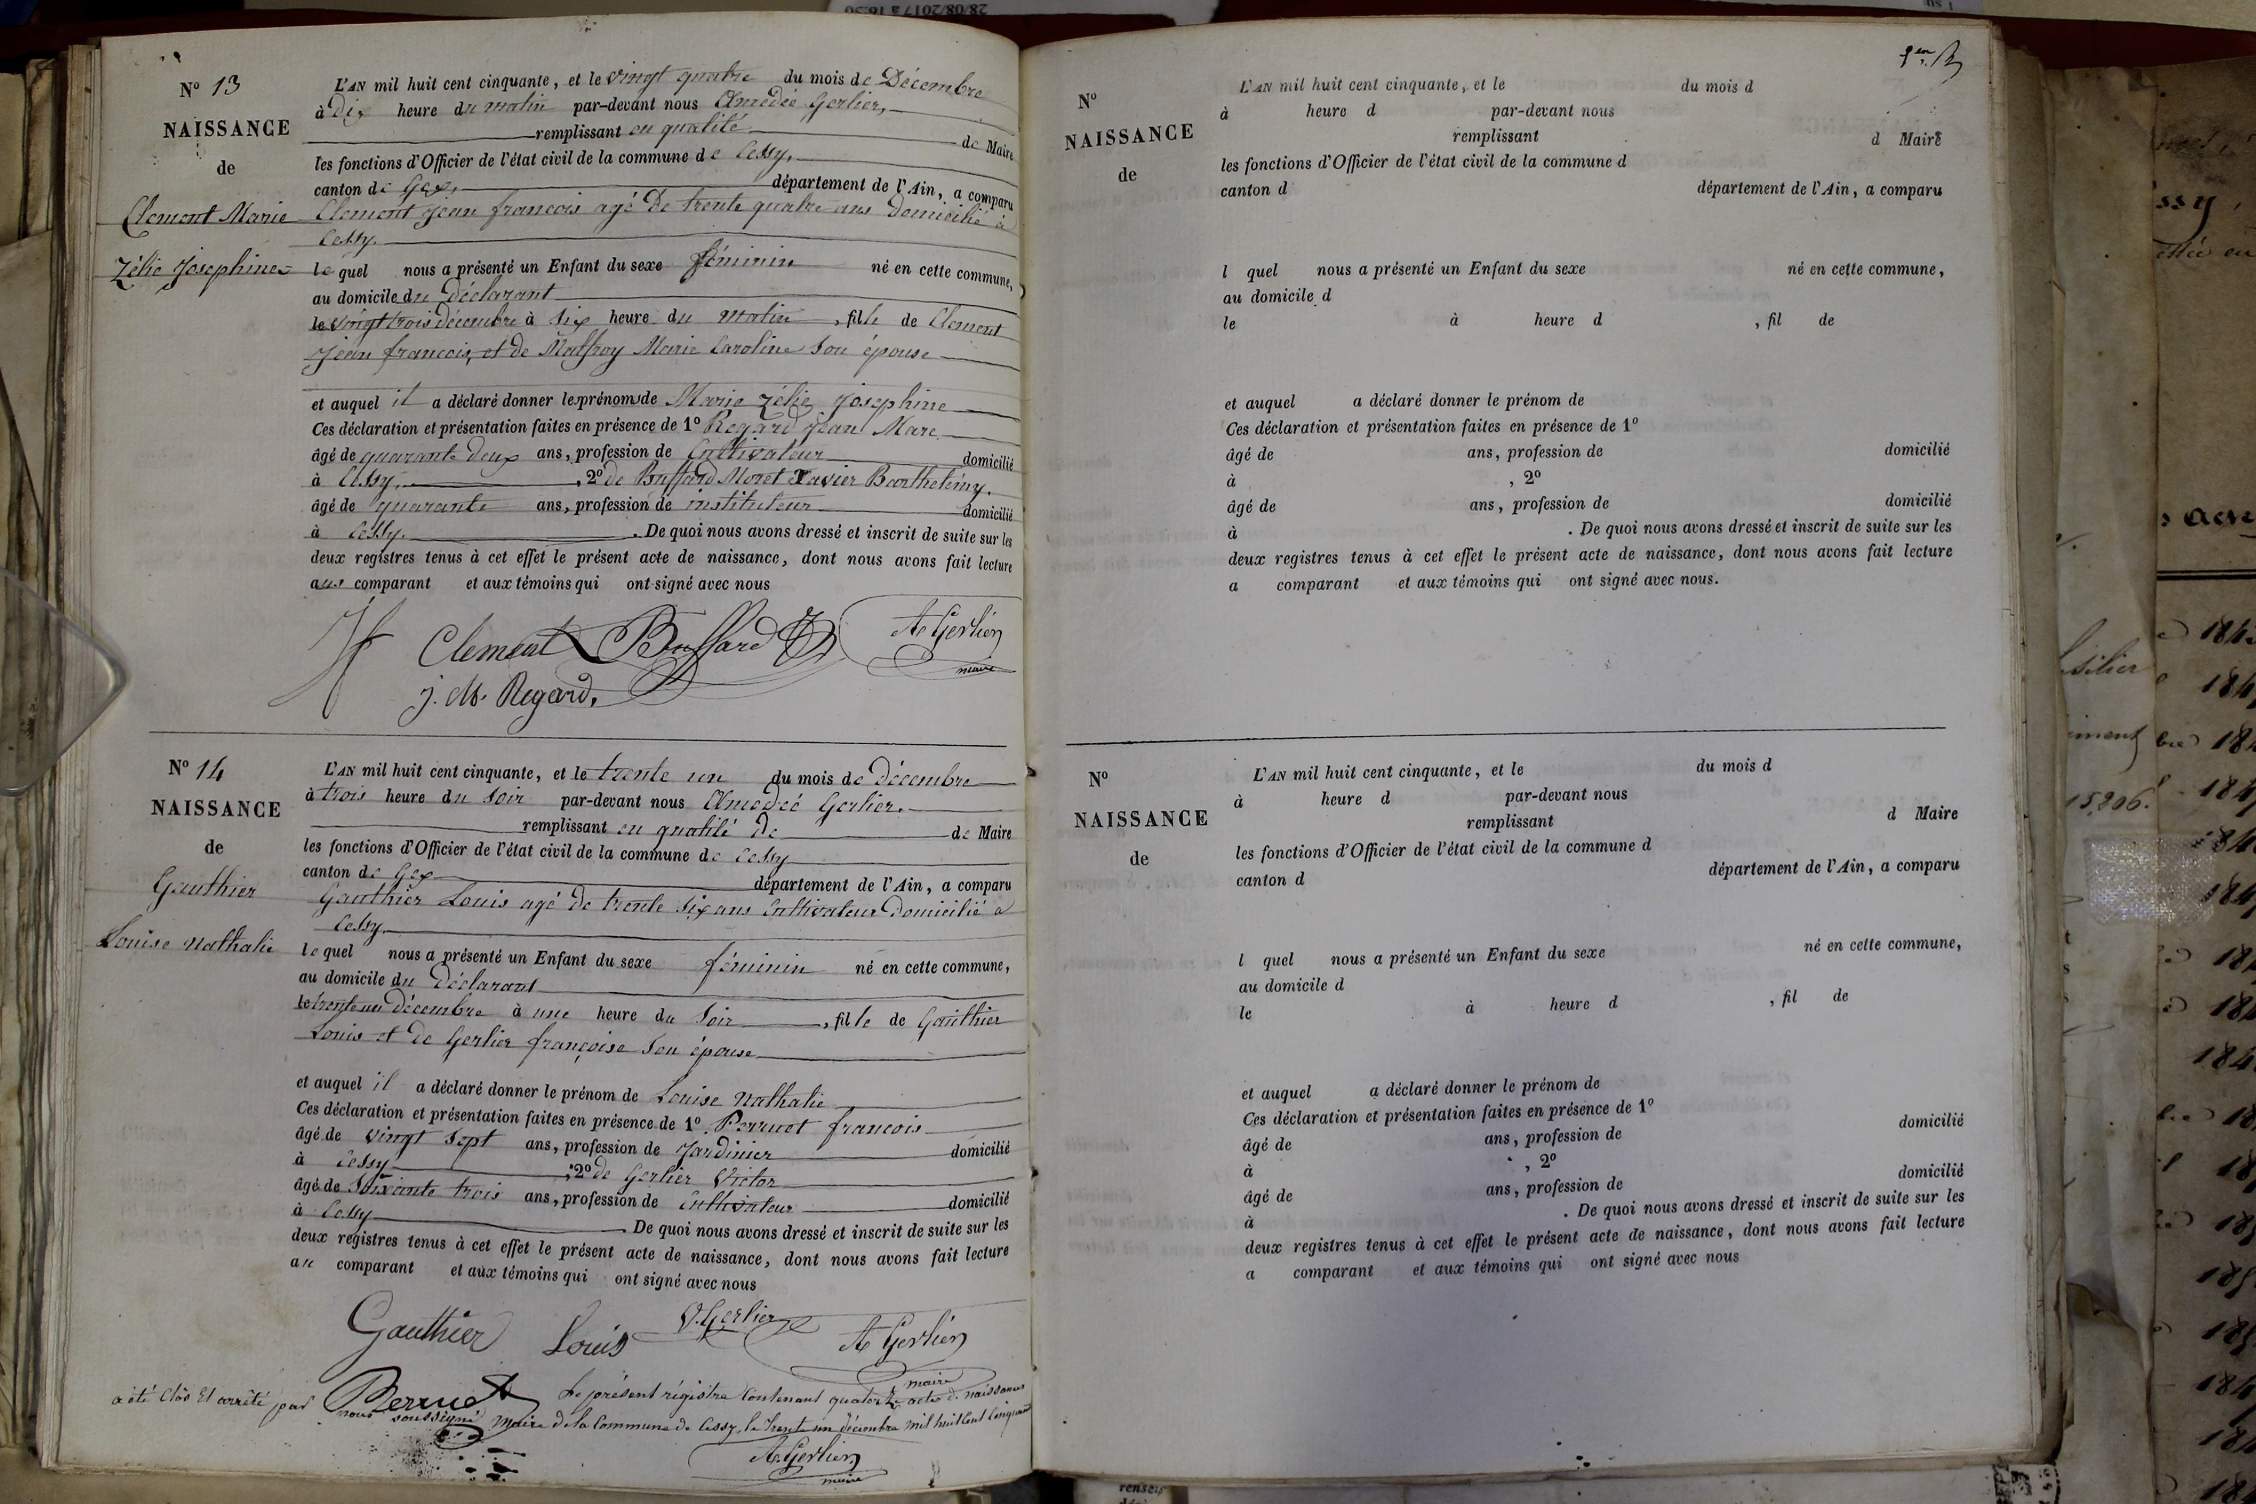 28/08/2017 à 16:50
N° 13
NAISSANCE
de
Clement Marie
Zélie Josephine
L'AN mil huit cent cinquante, et le vingt quatre du mois de Décembre
à dix heure du matin par-devant nous Amédée Gerlier,
remplissant en qualité de Maire
les fonctions d'Officier de l'état civil de la commune de Cessy,
canton de Gex, département de l'Ain, a comparu
Clement Jean francois agé de trente quatre ans domicilié à
Cessy.
le quel nous a présenté un Enfant du sexe féminin né en cette commune,
au domicile du déclarant
le vingt trois décembre à six heure du matin, fille de Clement
Jean francois, et de Maffroy Marie Caroline son épouse
et auquel il a déclaré donner les prénoms de Marie Zélie Josephine
Ces déclaration et présentation faites en présence de 1° Regard Jean Marc
âgé de quarante deux ans, profession de Cultivateur domicilié
à Cessy, 2° de Buffard Moret Xavier Barthelémy.
âgé de quarante ans, profession de instituteur domicilié
à Cessy. De quoi nous avons dressé et inscrit de suite sur les
deux registres tenus à cet effet le présent acte de naissance, dont nous avons fait lecture
aux comparant et aux témoins qui ont signé avec nous
Clement Buffard A Gerlier
maire
j. M. Regard,
N° 14
NAISSANCE
de
Gauthier
Louise Nathalie
L'AN mil huit cent cinquante, et le trente un du mois de décembre
à trois heure du soir par-devant nous Amedeé Gerlier.
remplissant en qualité de de Maire
les fonctions d'Officier de l'état civil de la commune de Cessy
canton de Gex département de l'Ain, a comparu
Gauthier Louis agé de trente six ans Cultivateur domicilié a
Cessy
le quel nous a présenté un Enfant du sexe féminin né en cette commune,
au domicile du déclarant
le trente un décembre à une heure du soir, fille de Gauthier
Louis et de Gerlier françoise son épouse
et auquel il a déclaré donner le prénom de Louise Nathalie
Ces déclaration et présentation faites en présence de 1° Perruot francois
âgé de vingt sept ans, profession de Jardinier domicilié
à Cessy, 2° de Gerlier Victor
âgé de soixante trois ans, profession de Cultivateur domicilié
à Cessy. De quoi nous avons dressé et inscrit de suite sur les
deux registres tenus à cet effet le présent acte de naissance, dont nous avons fait lecture
au comparant et aux témoins qui ont signé avec nous
Gauthier Louis V. Gerlier A Gerlier
maire
Perruot
Le présent régistre contenant quatorze actes de naissances
a été Clôs Et arrêté par nous soussigné maire de la Commune de Cessy, le trente un décembre mil huit cent cinquante
A. Gerlier
maire
N°
NAISSANCE
de
L'AN mil huit cent cinquante, et le du mois d
à heure d par-devant nous
remplissant d Maire
les fonctions d'Officier de l'état civil de la commune d
canton d département de l'Ain, a comparu
l quel nous a présenté un Enfant du sexe né en cette commune,
au domicile d
le à heure d , fil de
et auquel a déclaré donner le prénom de
Ces déclaration et présentation faites en présence de 1°
âgé de ans, profession de domicilié
à , 2°
âgé de ans, profession de domicilié
à . De quoi nous avons dressé et inscrit de suite sur les
deux registres tenus à cet effet le présent acte de naissance, dont nous avons fait lecture
a comparant et aux témoins qui ont signé avec nous.
N°
NAISSANCE
de
L'AN mil huit cent cinquante, et le du mois d
à heure d par-devant nous
remplissant d Maire
les fonctions d'Officier de l'état civil de la commune d
canton d département de l'Ain, a comparu
l quel nous a présenté un Enfant du sexe né en cette commune,
au domicile d
le à heure d , fil de
et auquel a déclaré donner le prénom de
Ces déclaration et présentation faites en présence de 1°
âgé de ans, profession de domicilié
à , 2°
âgé de ans, profession de domicilié
à . De quoi nous avons dressé et inscrit de suite sur les
deux registres tenus à cet effet le présent acte de naissance, dont nous avons fait lecture
a comparant et aux témoins qui ont signé avec nous